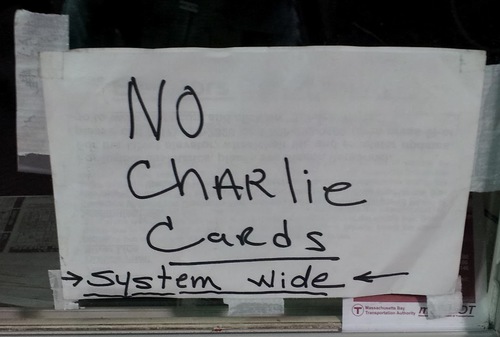 NO
CHARlie
Cards
→ system wide ←
Massachusetts Bay
Transportation Authority